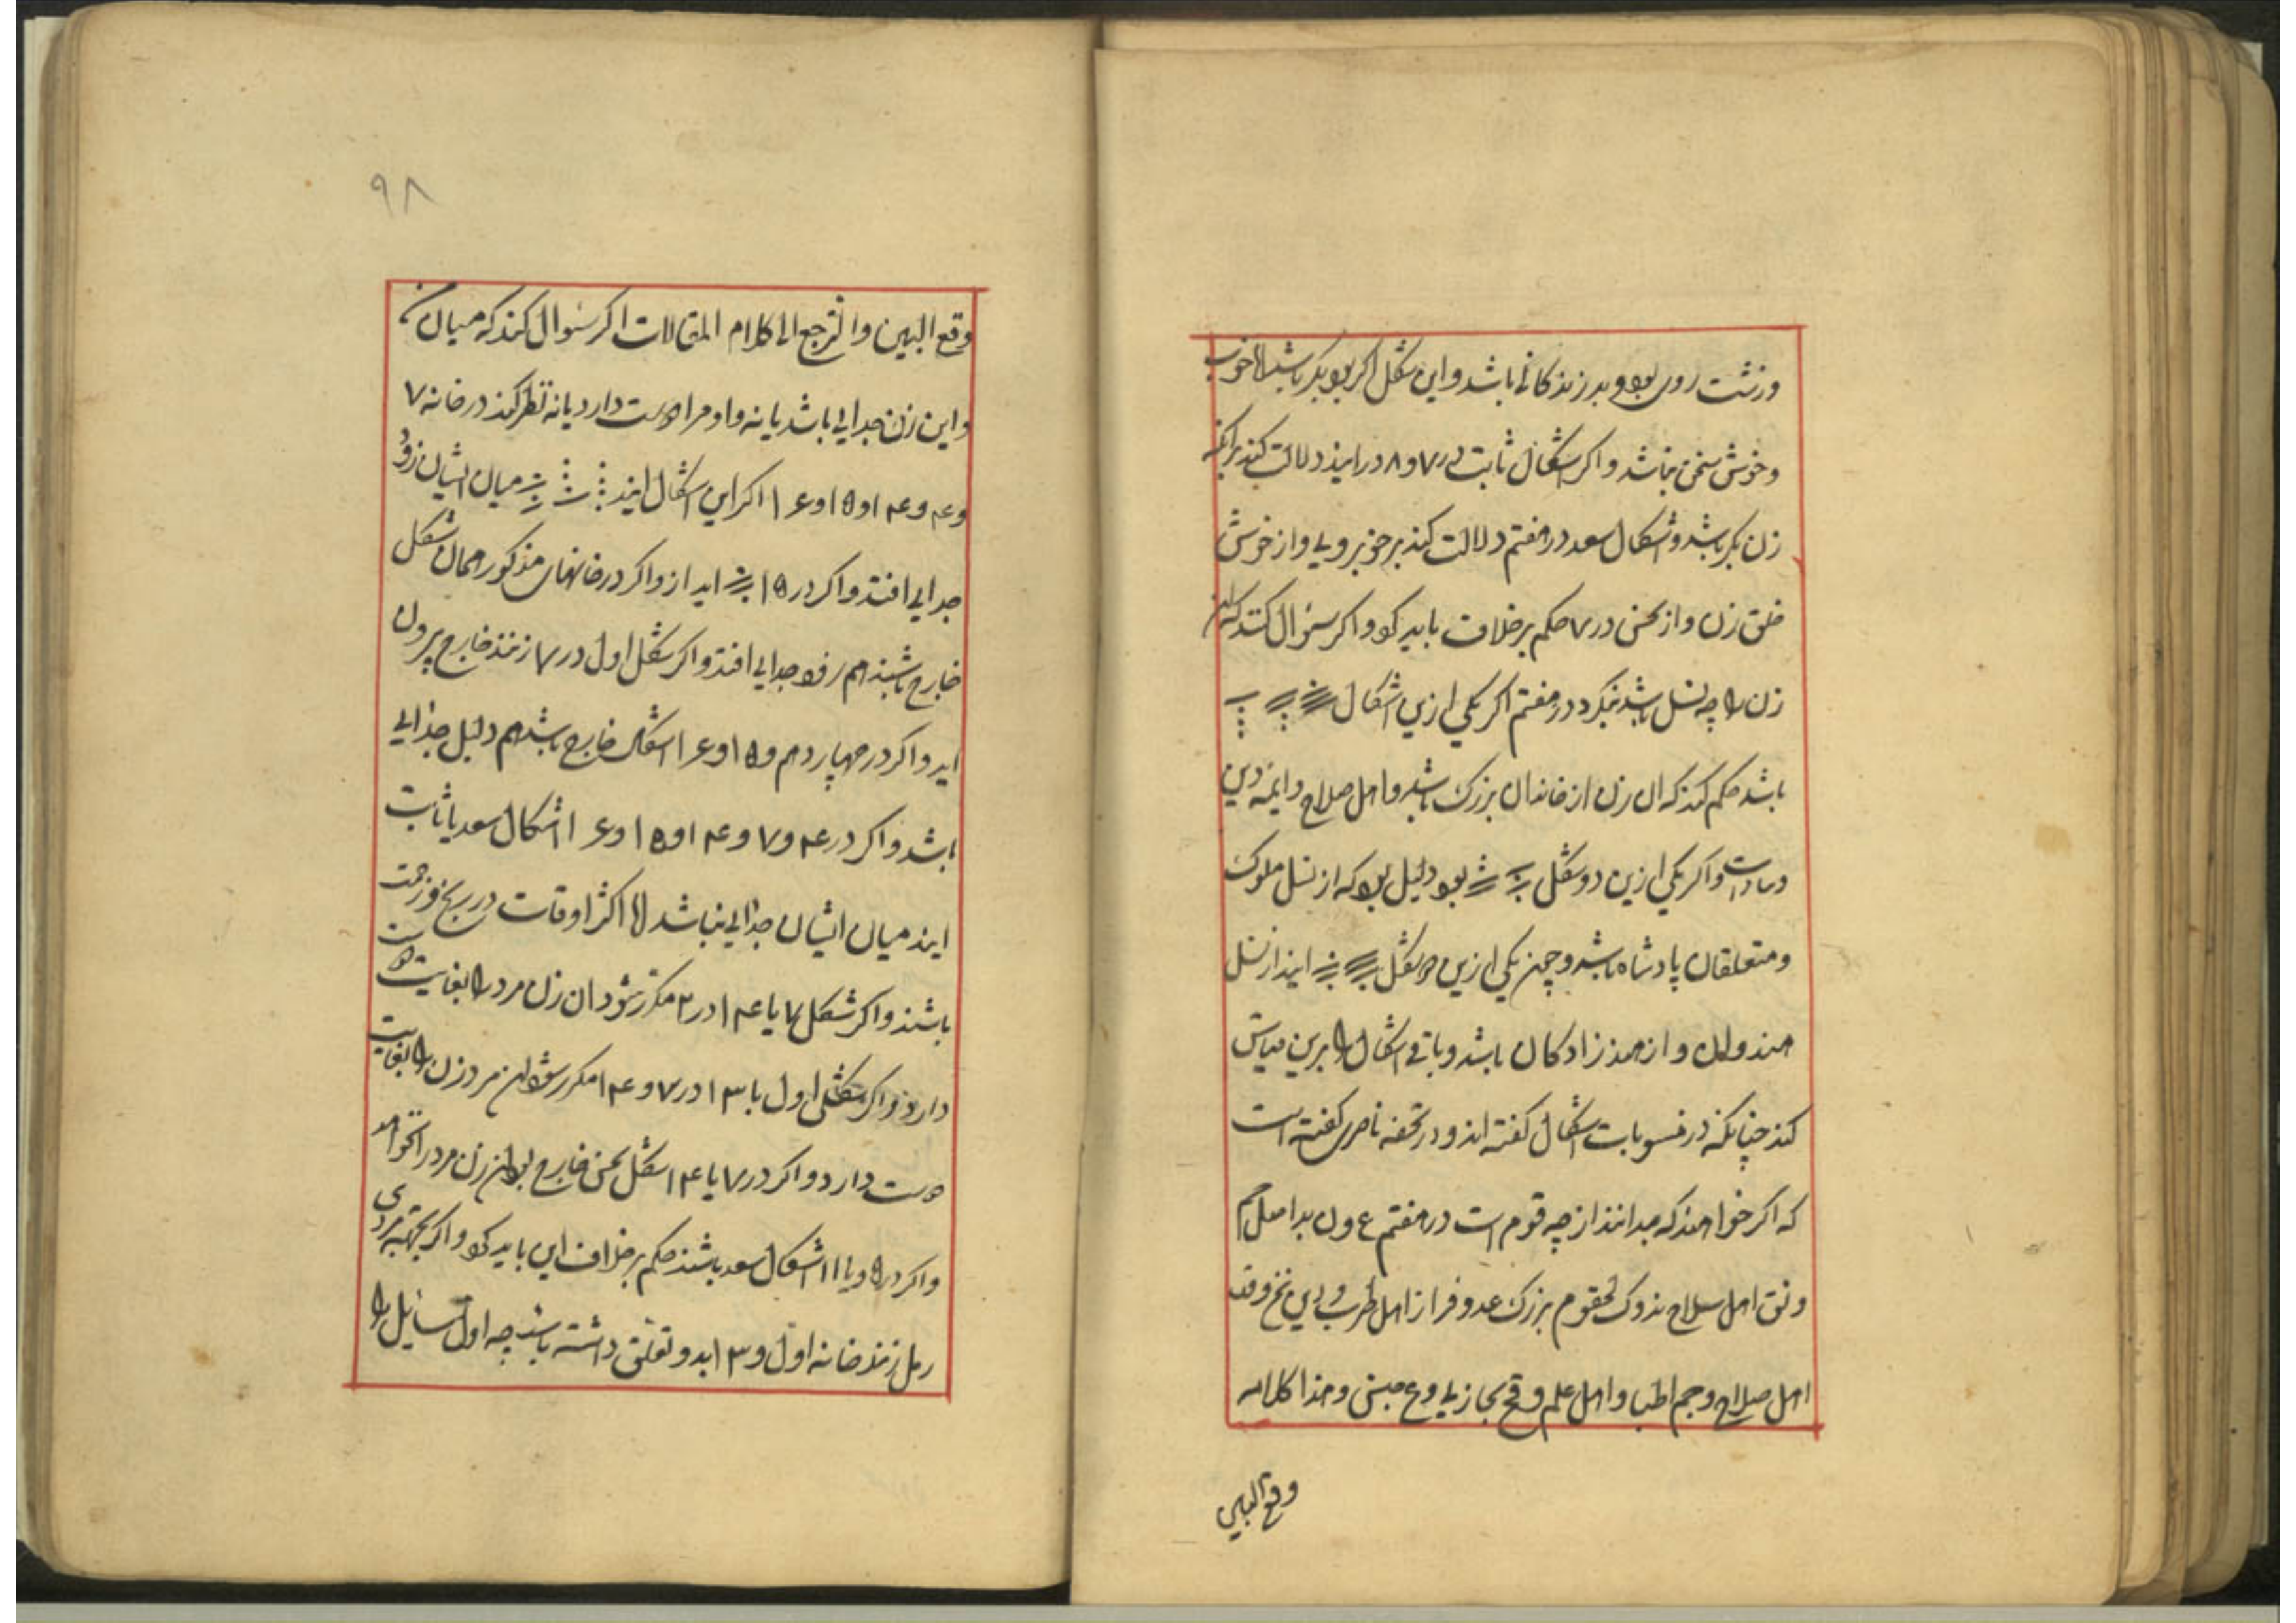 وزشت روی بود و بد زندکانی باشد و این شکل اکر بود بکر باشد اما خوب
و خوش سخن نباشد و اکر اشکال ثابت در ۷ و ۸ در ایند دلالت کند برانکه
زن بکر باشد و اشکال سعد در هفتم دلالت کند بر خوبرویی و از خوش
خلق زن و از نحس در ۷ حکم بر خلاف باید کرد و اکر سئوال کنند که این
زن را چه نسل باشد بنکرد در هفتم اکر یکی ازین اشکال
باشد حکم کند که ان زن از خاندان بزرک باشد و اهل صلاح و ایمه دین
و سادات و اکر یکی ازین دو شکل بود دلیل بود که از نسل ملوک
و متعلقان پادشاه باشد و چون یکی ازین دو شکل ایند از نسل
هندوان و از هندزادکان باشد و باقی اشکال را برین قیاس
کند چنانکه در منسوبات اشکال کفته اند و در تحفه ناصری کفته است
که اکر خواهند که بدانند از چه قوم است در هفتم
اهل سلاح بزرک اهل طرب
اهل صلاح و جم اطبا و اهل علم و هذا کلام
وقع البین
۹۸
وقع البین والترجع الی کلام المقالات اکر سئوال کند که میان من
و این زن جدایی باشد یا نه و او مرا دوست دارد یا نه نظر کند در خانه ۷
و ۴ و ۱۴ و ۱۵ و ۱۶ اکر این اشکال ایند میان ایشان زود
جدایی افتد و اکر در ۱۵ اید از و اکر در خانهای مذکور همان شکل
خارج باشند هم زود جدایی افتد و اکر شکل اول در ۷ زنند خارج بیرون
اید و اکر در چهاردهم و ۱۵ و ۱۶ اشکال خارج باشد هم دلیل جدایی
باشد و اکر در ۴ و ۷ و ۱۴ و ۱۵ و ۱۶ اشکال سعد یا ثابت
ایند میان ایشان جدایی نباشد اما اکثر اوقات در رنج و زحمت
باشند و اکر شکل ۷ یا ۱۴ در ۲ مکرر شود ان زن مرد را بغایت دوست
دارد و اکر شکل اول یا ۱۳ در ۷ و ۱۴ مکرر شود این مرد زن را بغایت
دوست دارد و اکر در ۷ یا ۱۴ شکل نحس خارج بود این زن مرد را نخواهد
و اکر در ۵ و یا ۱۱ اشکال سعد باشند حکم بر خلاف این باید کرد و اکر بجهته مردی
رمل زنند خانه اول و ۱۳ بدو تعلق داشته باشد چه اول سایل را